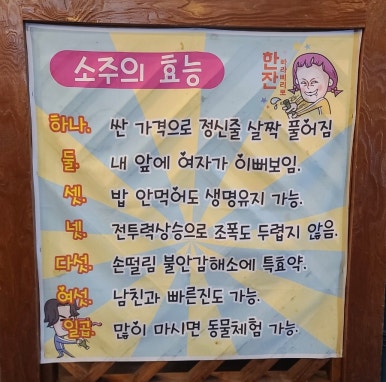 소주의 효능
한잔
하나. 싼 가격으로 정신줄 살짝 풀어짐
둘. 내 앞에 여자가 이뻐보임.
셋. 밥 안먹어도 생명유지 가능.
넷. 전투력상승으로 조폭도 두렵지 않음.
다섯. 손떨림 불안감해소에 특효약.
여섯. 남친과 빠른진도 가능.
일곱. 많이 마시면 동물체험 가능.